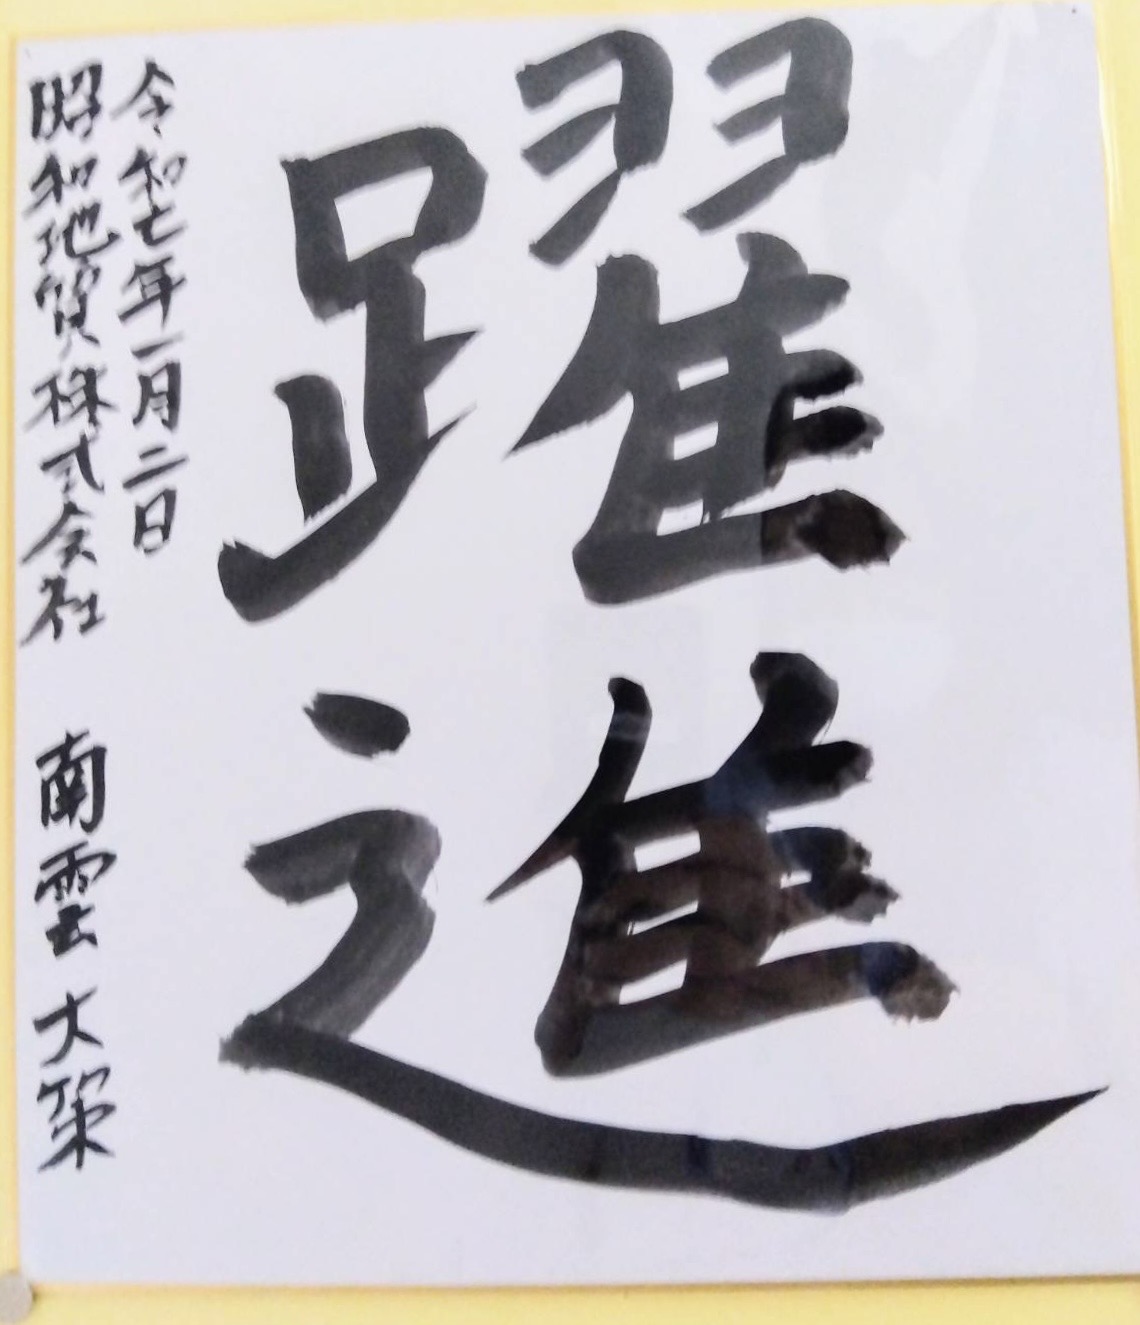 躍進
令和七年一月二日
昭和地質株式会社 南雲大策